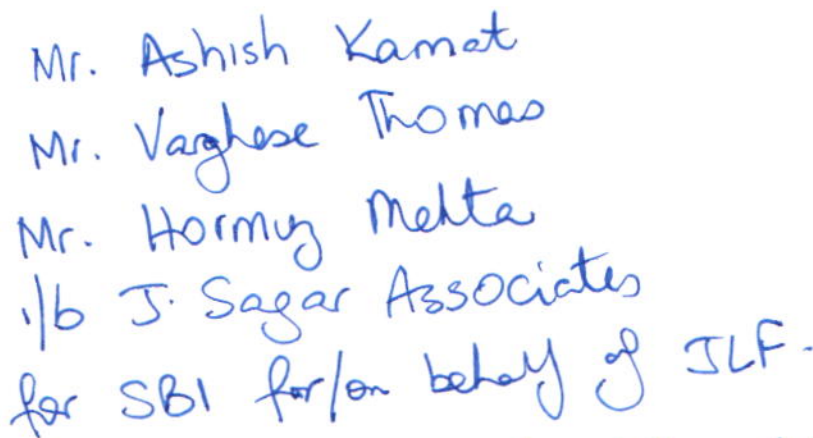 Mr. Ashish Kamat
Mr. Varghese Thomas
Mr. Hormuz Mehta
i/b J. Sagar Associates
for SBI for/on behalf of JLF.